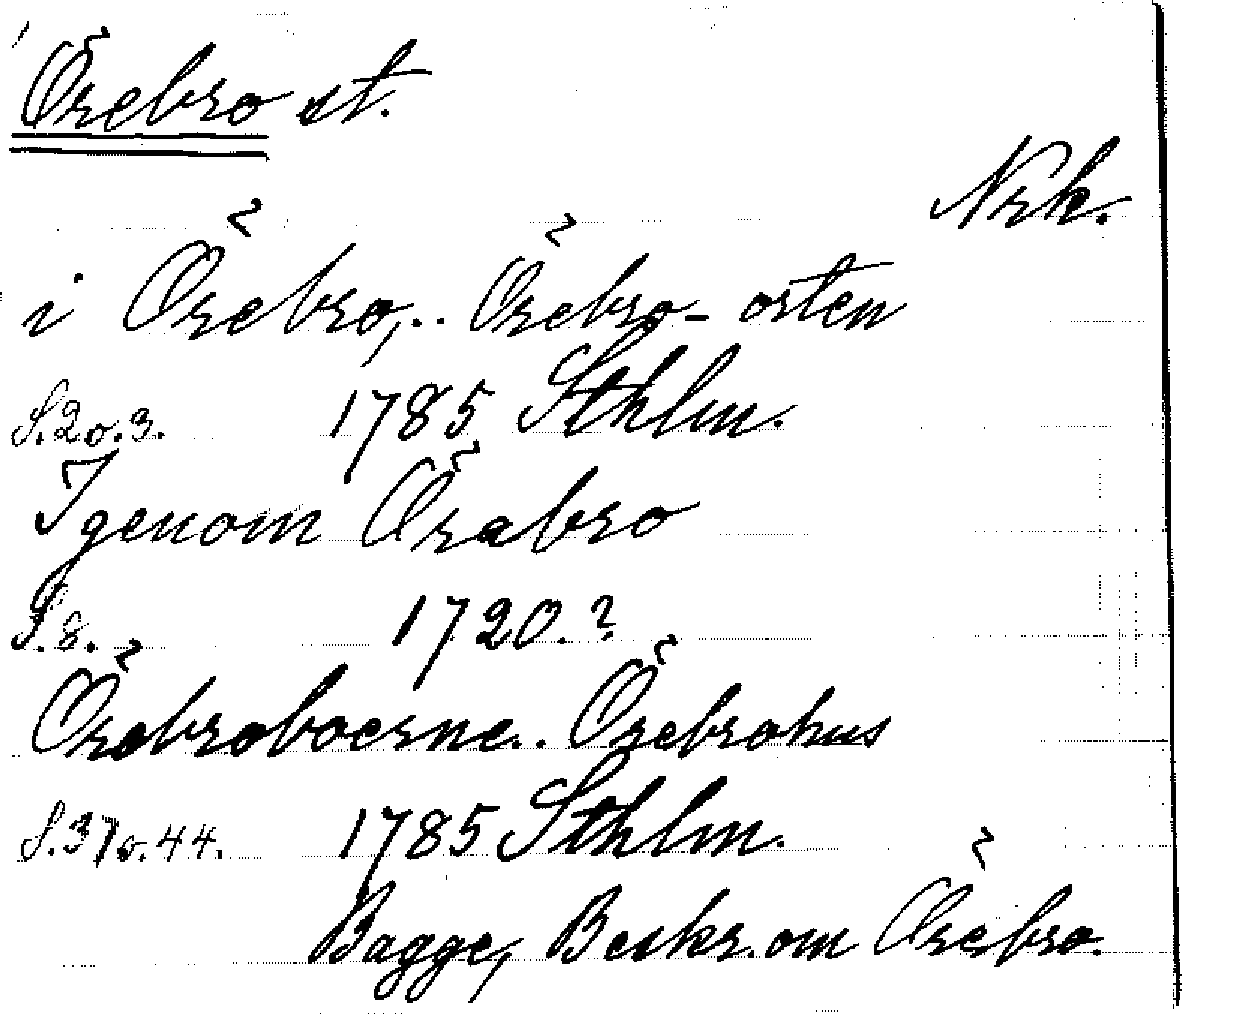 Örebro st.
Nrk.
i Örebro,.. Örebro-orten
S. 2 o. 3. 1785 Sthlm.
Igenom Örabro
S. 8. 1720.?
Örebroboerne.. Örebrohus
S. 37 o. 44. 1785 Sthlm.
Bagge, Beskr. om Örebro.